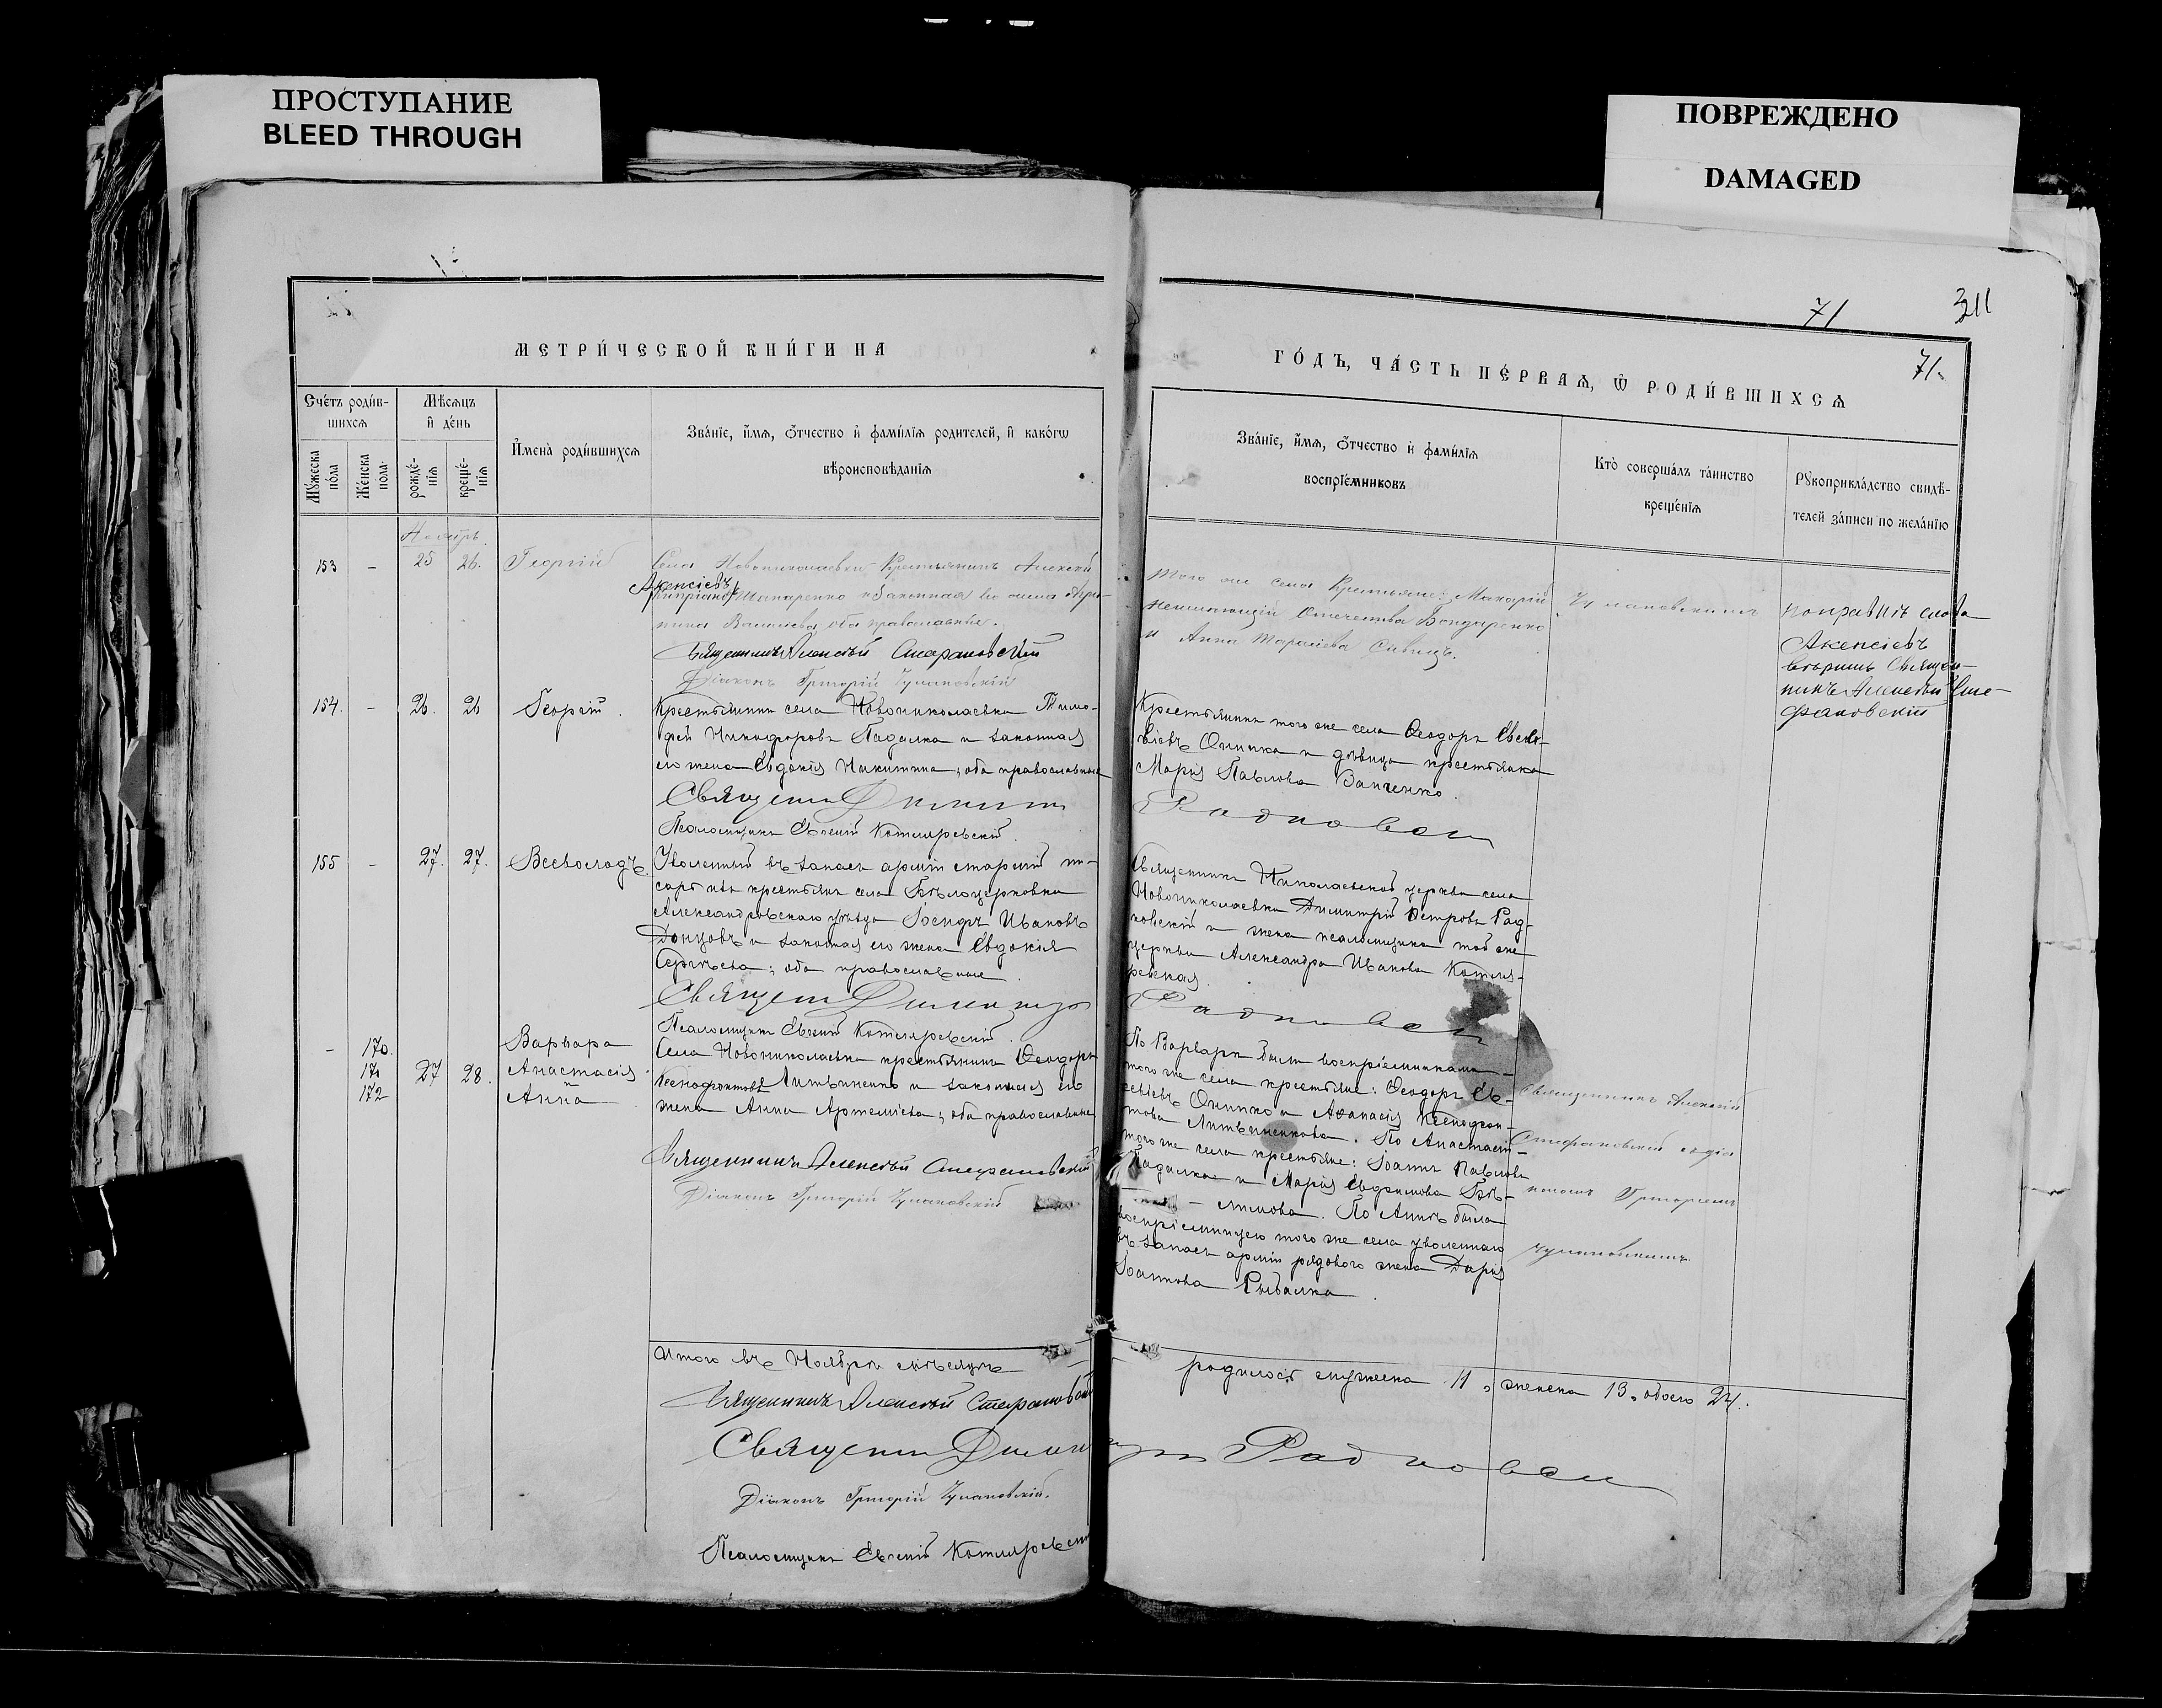 ПРОСТУПАНИЕ
BLEED THROUGH
ПОВРЕЖДЕНО
DAMAGED
71
311
71.
МЕТРИ́ЧЕСКОЙ КНИ́ГИ НА
ГО́ДЪ, ЧА́СТЬ ПЕ́РВАѦ, Ѿ РОДИ́ВШИХСѦ
Сче́тъ роди́в-
шихсѧ
Мѣ́сѧцъ
и҆ де́нь
Мꙋ́жеска по́ла
Же́нска по́ла
рожде́-
нїѧ
креще́-
нїѧ
И҆мена̀ роди́вшихсѧ
Зва́нїе, и҆́мѧ, ѻ҆́тчество и҆ фами́лїѧ родителей, и҆ како́гѡ
вѣроисповѣ́данїѧ
Зва́нїе, и҆́мѧ, ѻ҆́тчество и҆ фами́лїѧ
воспрїе́мниковъ
Кто̀ соверша́лъ та́инство
креще́нїѧ
Рꙋкоприкла́дство свидѣ́-
телей за́писи по жела́нїю
Ноябрь.
153 - 25 26. Георгій
Села Новониколаевки Крестьянинъ Алексей
Алексіевъ
Шапаренко и законная его жена Агри-
пина Васильева, оба православные.
Священникъ Алексѣй Стефановский
Діаконъ Григорій Чумановскій
того же села Крестьяне: Макарій
неимѣющій Отечества Бондаренко
и Анна Тарасіева
Чумановскимъ
поправкѣ слова
Алексіевъ
вѣримъ Священ-
никъ Алексѣй Сте-
фановскій
154. - 26. 26 Георгій.
Крестьянинъ села Новониколаевки Тимо-
фей Никифоровъ Падалка и законная
его жена Евдокія Никитина; оба православные
Священ Димитр
Псаломщикъ Евгеній Котляревскій.
Крестьянинъ того же села Ѳеодоръ Евсе-
віевъ Онипко и дѣвица крестьянка
Марія Павлова Ванченко.
Радковск
155 - 27. 27. Всеволодъ
Уволенный въ запасъ арміи старшій пи-
сарь изъ крестьянъ села Бѣлоцерковки
Александровскаго уѣзда Іосифъ Ивановъ
Донцовъ и законная его жена Евдокія
Сергѣева; оба православные.
Священ Димитр
Псаломщикъ Евгеній Котляревскій.
Священникъ Николаевской церкви села
Новониколаевки Димитрій Петровъ Рад-
ковскій и жена псаломщика той же
церкви Александра Иванова Котля-
ревская.
Радковск
- 170. Варвара
171 27 28. Анастасія.
172 Анна
Села Новониколаевки крестьянинъ Ѳеодоръ
Ксенофонтовъ Литвиненко и законная его
жена Анна Артемиева; оба православные
Священникъ Алексѣй Стефановский
Діаконъ Григорій Чумановскій
По Варваре были воспріемниками
того же села крестьяне: Ѳеодоръ Ев-
севіевъ Онипко и Аѳанасія Ксенофон-
това Литвиненкова. По Анастасіи
того же села крестьяне: Іоаннъ Павловъ
Падалка и Марія Евфимова Бѣ-
— лимова. По Аннѣ была
воспріемницею того же села уволеннаго
въ запасъ арміи рядового жена Дарія
Іоаннова Рыбалка.
Священникъ Алексій
Стефановскій съ діа
кономъ Григоріемъ
Чумановскимъ.
Итого въ Ноябрѣ мѣсяцѣ — родилось мужеска 11, женска 13, обоего 24.
Священникъ Алексѣй Стефановский
Священ Димитр Радковск
Діаконъ Григорій Чумановскій.
Псаломщикъ Евгеній Котляревск